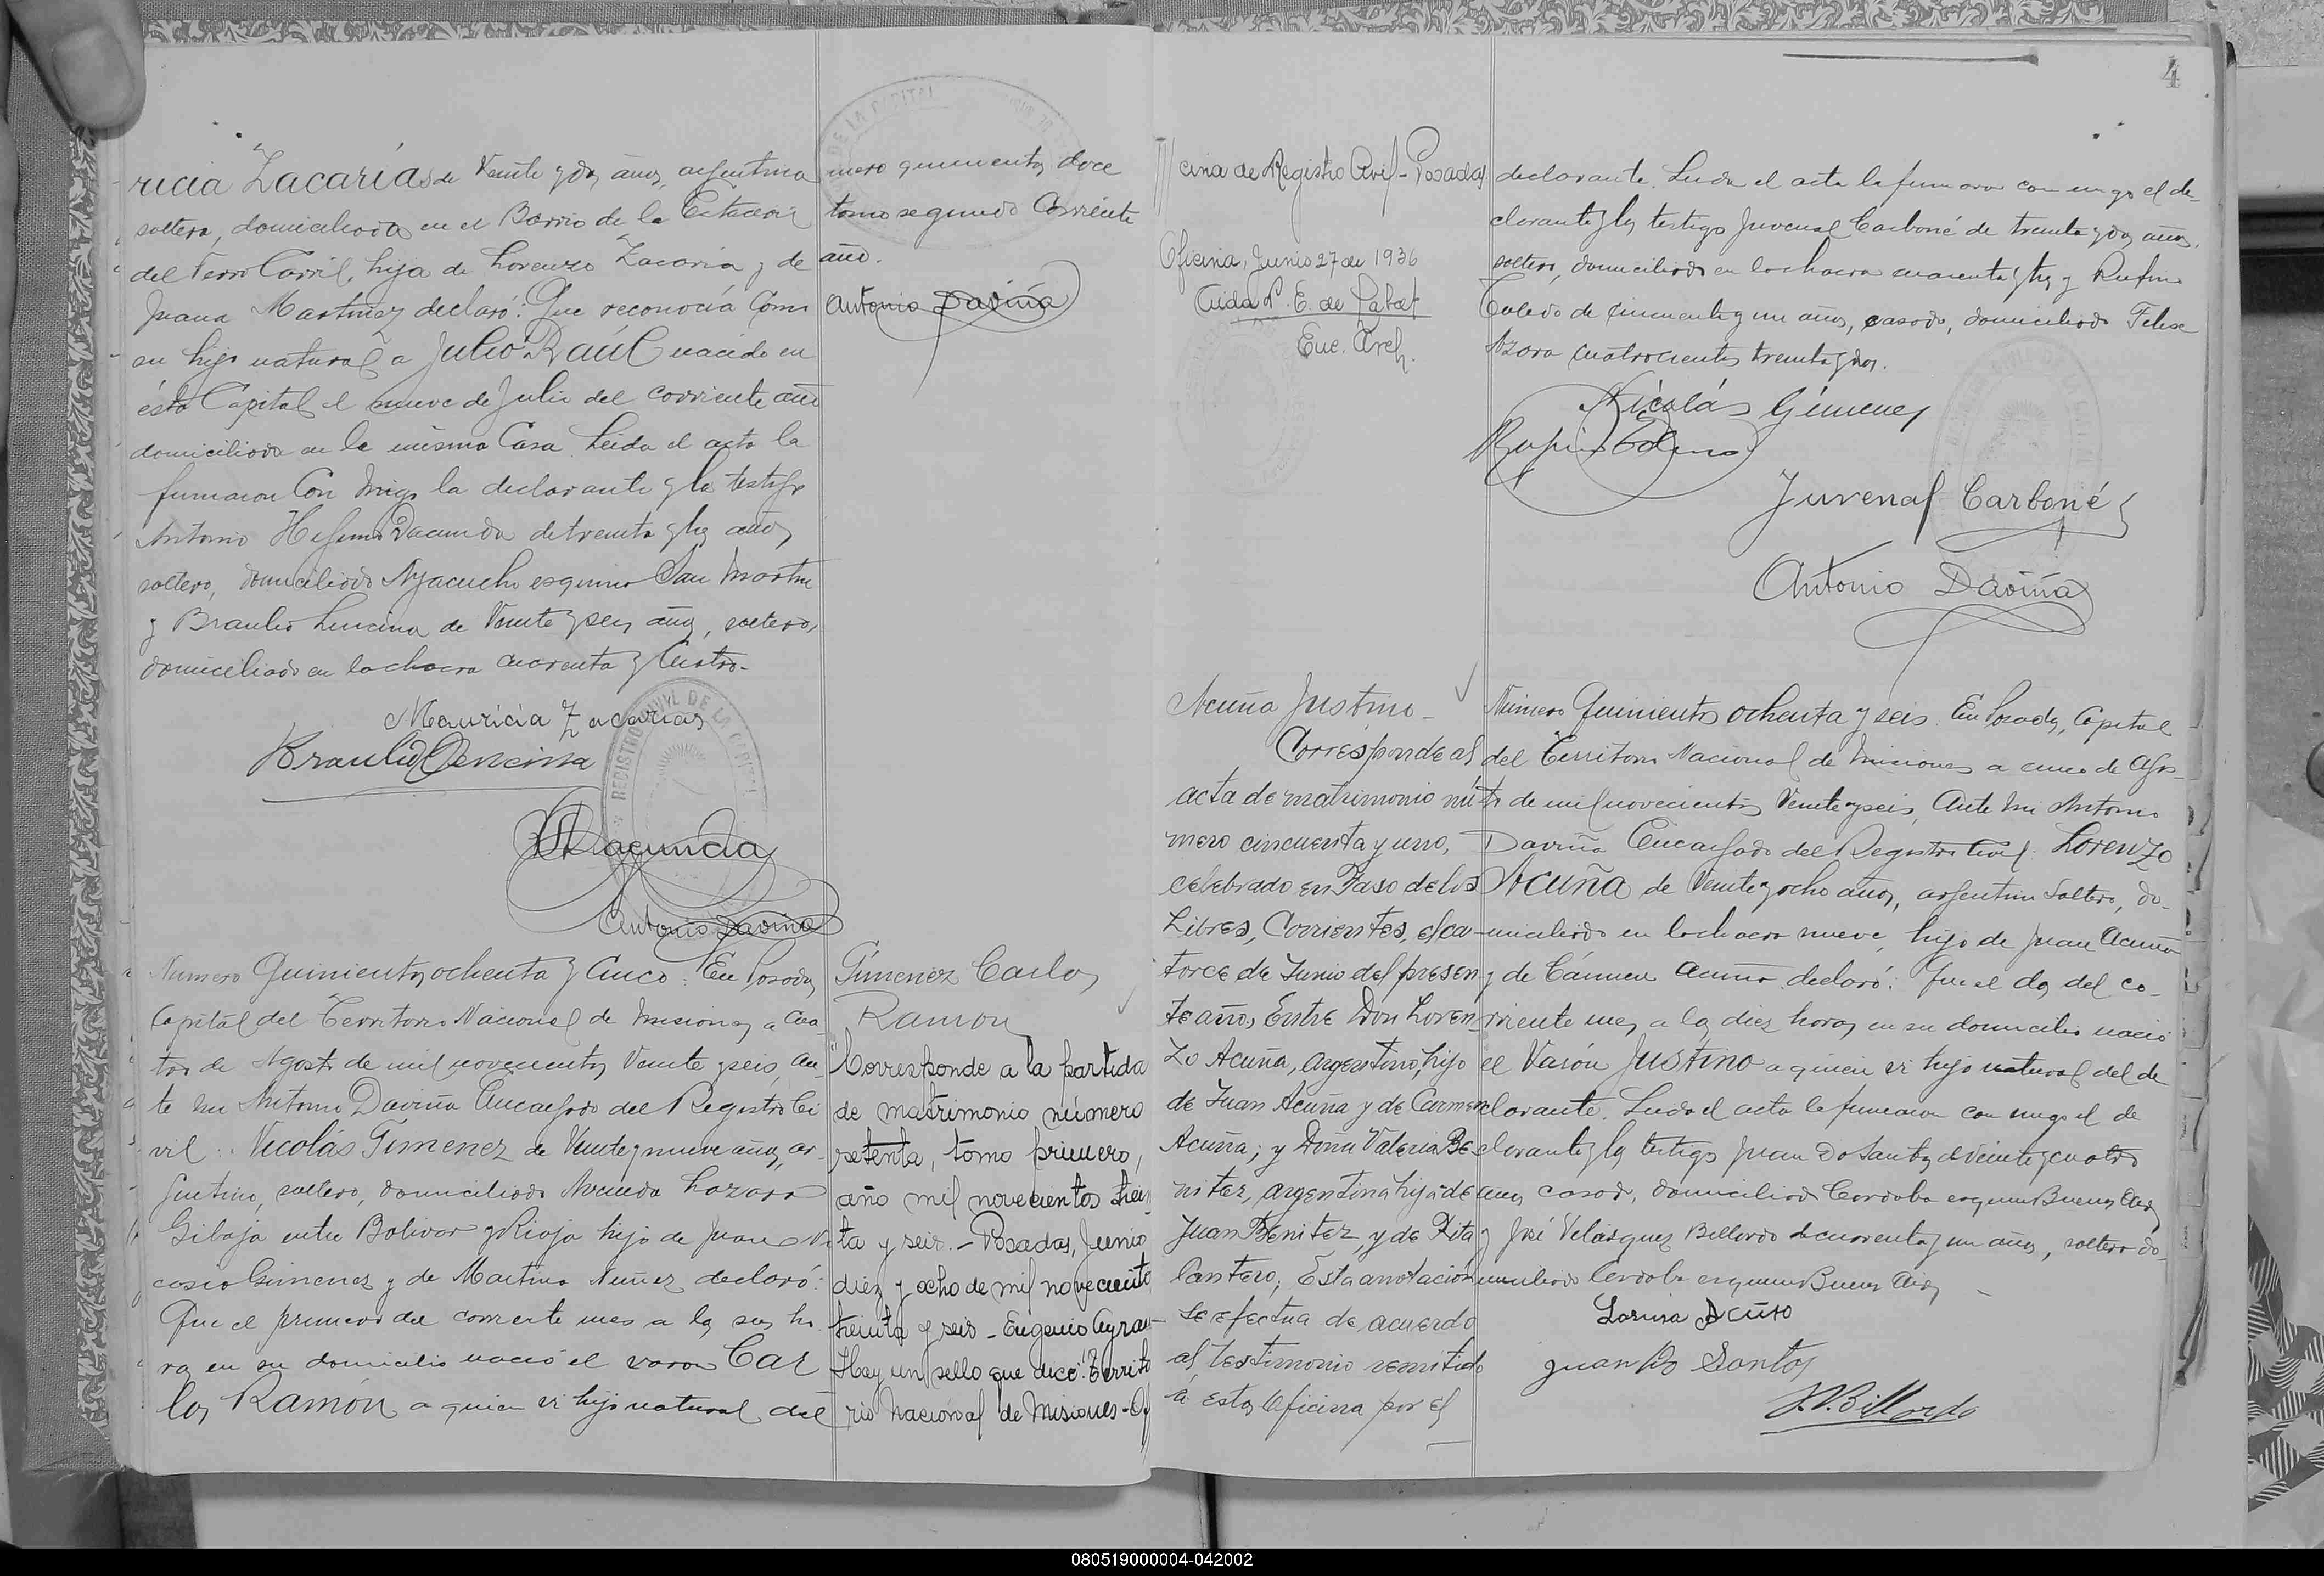 ricia Zacarías de veinte y dos años, argentina
soltera, domiciliada en el Barrio de la Estación
del Ferro Carril, hija de Lorenzo Zacaria y de
Juana Martinez declaró: Que reconocía como
su hijo natural a Julio Raúl nacido en
ésta Capital el nueve de Julio del corriente año
domiciliado en la misma Casa. Leida el acta la
firmaron con migo la declarante y los testigos
Antonio Dacunda de treinta y tres años
soltero, domiciliado Ayacucho esquina San Martin
y Braulio Lencina de veinte y seis años, soltero,
domiciliado en la chacra cuarenta y cuatro.
Mauricia Zacarias
Braulio Lencina
Dacunda
Antonio Daviña
REGISTRO CIVIL DE LA CAPITAL
mero quinientos doce
tomo segundo corriente
año.
Antonio Daviña
Numero Quinientos ochenta y cinco: En Posadas,
Capital del Territorio Nacional de Misiones a cua
tro de Agosto de mil novecientos veinte y seis, an
te mi Antonio Daviña Encargado del Registro Ci
vil: Nicolás Gimenez de veinte y nueve años, ar
gentino, soltero, domiciliado Avenida Lazaro
Gibaja entre Bolivar y Rioja hijo de Juan Ni
casio Gimenez y de Martina Nuñez declaró:
Que el primero del corriente mes a las seis ho
ras en su domicilio nació el varon Car
los Ramón a quien es hijo natural del
Gimenez Carlos
Ramon
"Corresponde a la partida
de matrimonio número
setenta, tomo primero,
año mil novecientos trein
ta y seis.- Posadas, Junio
diez y ocho de mil novecientos
treinta y seis - Eugenio
Hay un sello que dice: "Territo
rio Nacional de Misiones - Of
4
cina de Registro Civil - Posadas
Oficina, Junio 27 de 1936
Enc. Arch.
declarante. Leida el acta la firmaron con migo el de
clarante y los testigos Juvenal Carboné de treinta y dos años,
soltero, domiciliado en la chacra cuarenta y tres y Rufino
Toledo de cincuenta y un años, casado, domiciliado Felix
Azara cuatrocientos treinta y dos.
Nicolás Gimenez
Rufino Toledo
Juvenal Carboné
Antonio Daviña
Acuña Justino -
Corresponde al
acta de matrimonio nú
mero cincuenta y uno,
celebrado en Paso de los
Libres, Corrientes, el ca-
torce de Junio del presen
te año, Entre Don Loren
zo Acuña, argentino, hijo
de Juan Acuña y de Carmen
Acuña; y Doña Valeria Be
nitez, argentina hija de
Juan Benitez, y de Rita
Cantero; Esta anotación
se efectua de acuerdo
al testimonio remitido
a esta Oficina por el
Número Quinientos ochenta y seis. En Posadas, Capital
del Territorio Nacional de Misiones a cinco de Agos
to de mil novecientos veinte y seis, Ante mi Antonio
Daviña Encargado del Registro Civil: Lorenzo
Acuña de veinte y ocho años, argentino soltero, do-
miciliado en la chacra nueve, hijo de Juan Acuña
y de Cármen Acuña declaró: Que el dos del co-
rriente mes a las diez horas en su domicilio nació
el Varón Justino a quien es hijo natural del de
clarante. Leida el acta la firmaron con migo el de
clarante y los testigos Juan Do Santos de veinte y cuatro
años casado, domiciliado Cordoba esquina Buenos Aires
y José Velasquez Billordo de cuarenta y un años, soltero do
miciliado Cordoba esquina Buenos Aires
Juan Do Santos
J.V. Billordo
080519000004-042002